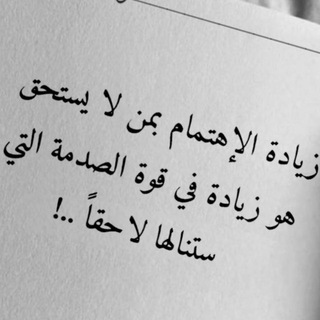 زيادة الإهتمام بمن لا يستحق
هو زيادة في قوة الصدمة التي
ستنالها لاحقاً ..!